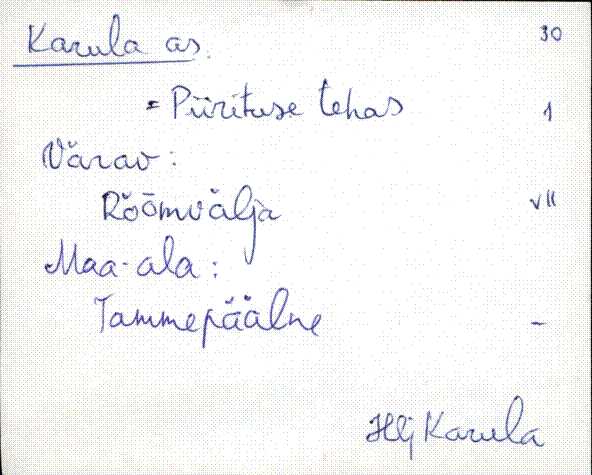 Karula as. 30
= Piirituse tehas 1
Värav:
Rõõmvälja VII
Maa-ala:
Tammepäälne -
Hlj Karula